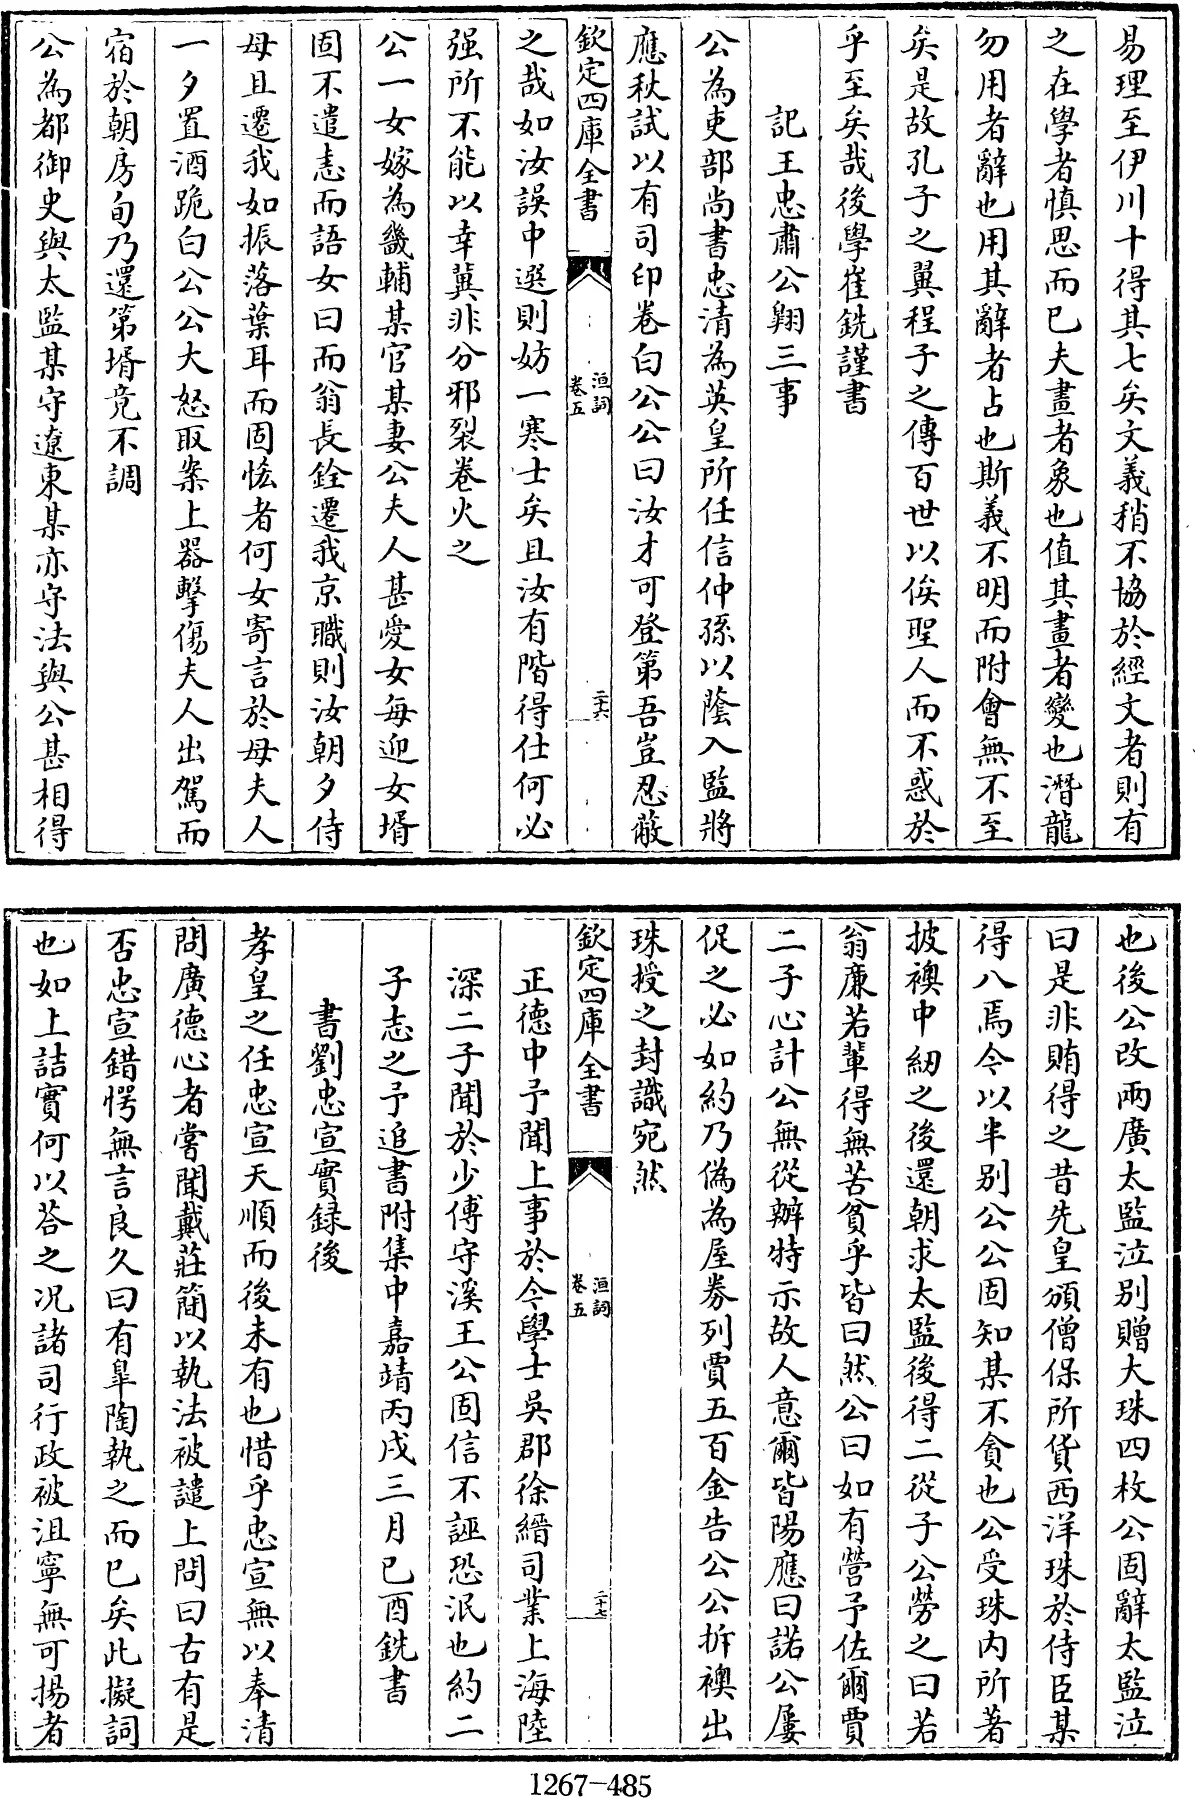 易理至伊川十得其七矣文義稍不協於經文者則有
之在學者慎思而已夫畫者象也值其畫者變也潛龍
勿用者辭也用其辭者占也斯義不明而附會無不至
矣是故孔子之翼程子之傳百世以俟聖人而不惑於
乎至矣哉後學崔銑謹書
記王忠肅公翺三事
公為吏部尚書忠清為英皇所任信仲孫以䕃入監將
應秋試以有司印卷白公公曰汝才可登第吾豈忍蔽
欽定四庫全書
洹詞
卷五
二十六
之哉如汝誤中選則妨一寒士矣且汝有階得仕何必
强所不能以幸冀非分邪裂卷火之
公一女嫁為畿輔某官某妻公夫人甚愛女每迎女壻
固不遣恚而語女曰而翁長銓遷我京職則汝朝夕侍
母且遷我如振落葉耳而固恡者何女寄言於母夫人
一夕置酒跪白公公大怒取案上器擊傷夫人出駕而
宿於朝房旬乃還第壻竟不調
公為都御史與太監某守遼東某亦守法與公甚相得
也後公改兩廣太監泣别贈大珠四枚公固辭太監泣
曰是非賄得之昔先皇頒僧保所貨西洋珠於侍臣某
得八焉今以半别公公固知某不貪也公受珠内所著
披襖中紉之後還朝求太監後得二從子公勞之曰若
翁廉若輩得無苦貧乎皆曰然公曰如有營予佐爾賈
二子心計公無從辦特示故人意爾皆陽應曰諾公屢
促之必如約乃偽為屋券列賈五百金告公公拆襖出
珠授之封識宛然
欽定四庫全書
洹詞
卷五
二十七
正德中予聞上事於今學士吳郡徐縉司業上海陸
深二子聞於少傅守溪王公固信不誣恐泯也約二
子志之予追書附集中嘉靖丙戌三月已酉銑書
書劉忠宣實録後
孝皇之任忠宣天順而後未有也惜乎忠宣無以奉清
問廣德心者嘗聞戴莊簡以執法被譴上問曰古有是
否忠宣錯愕無言良久曰有臯陶執之而已矣此擬詞
也如上詰實何以荅之况諸司行政被沮寧無可揚者
1267-485